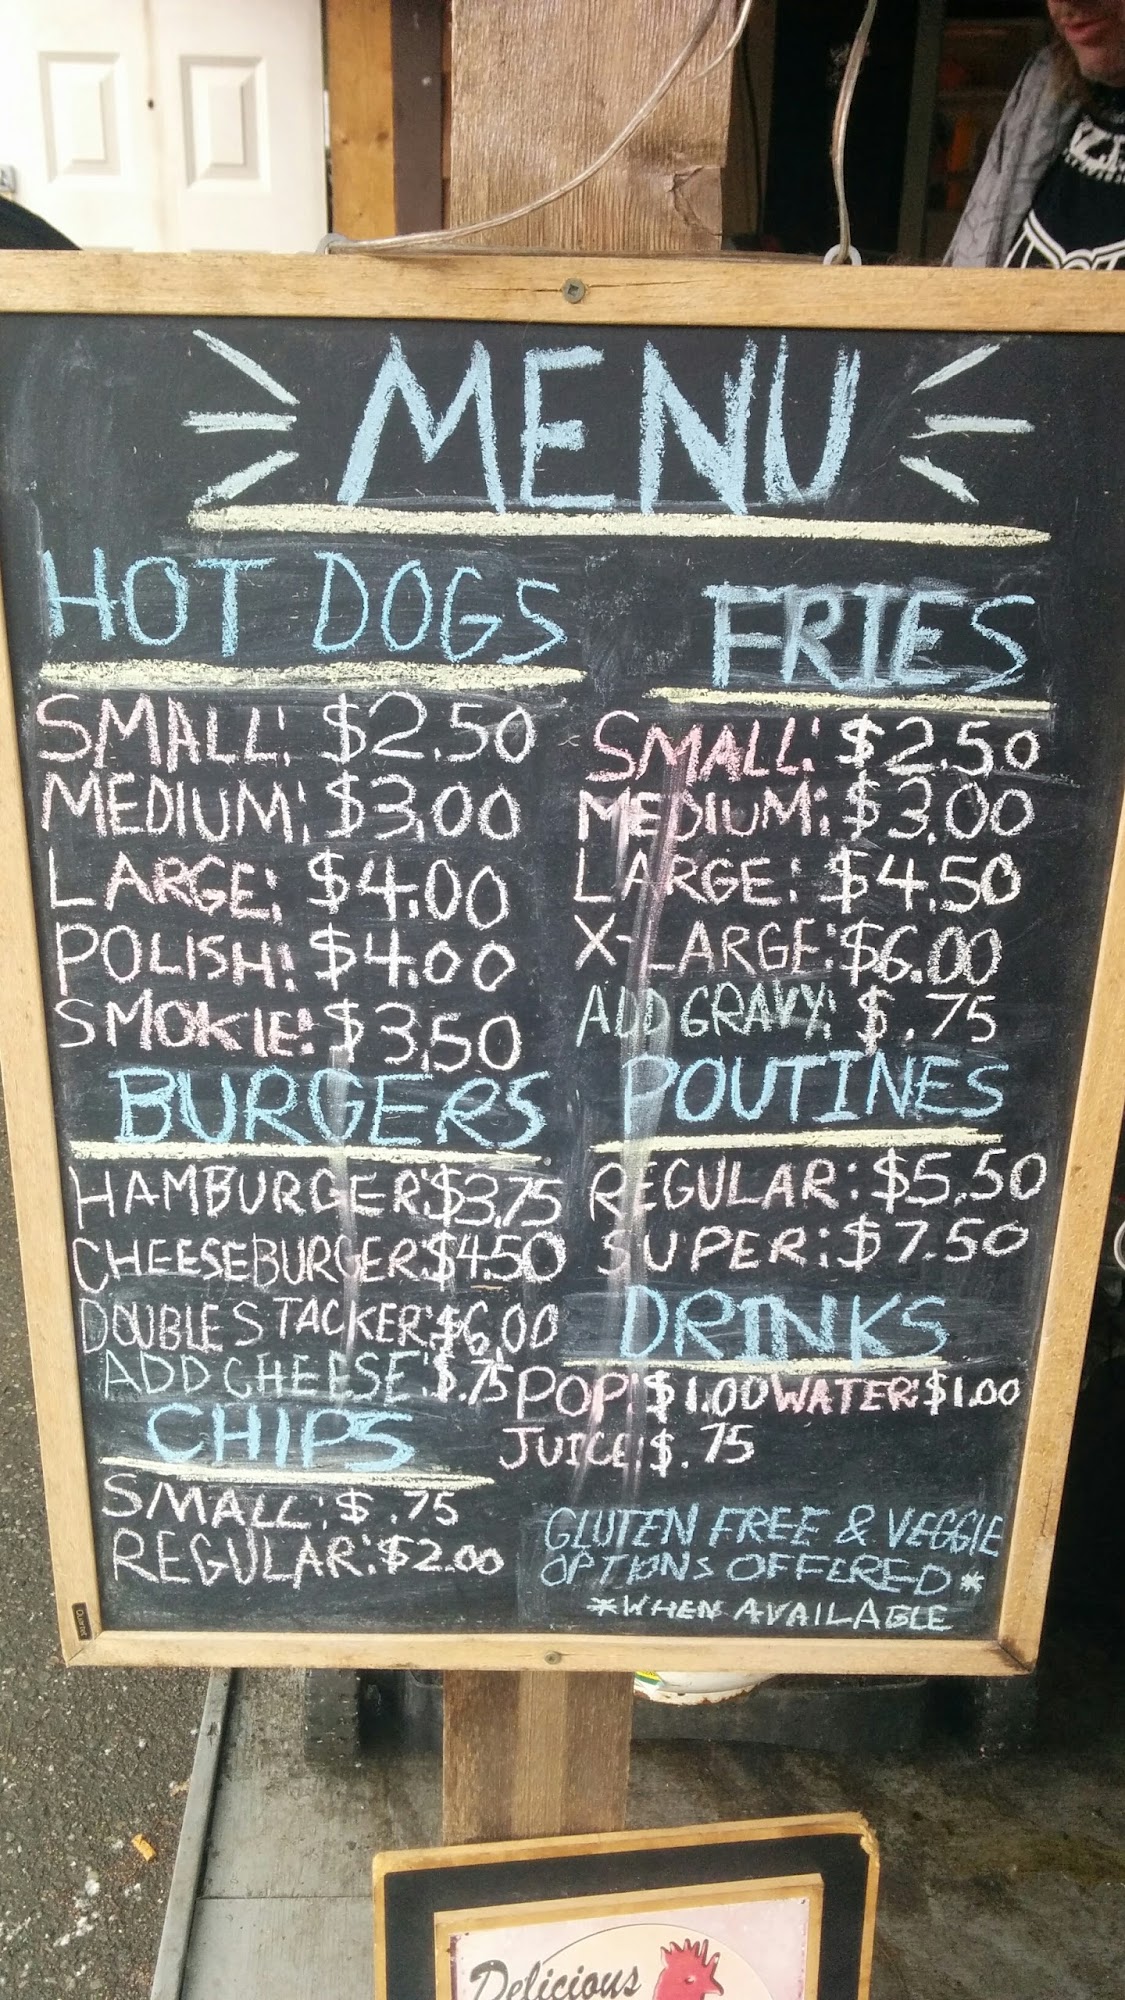 MENU
HOT DOGS
SMALL: $2.50
MEDIUM: $3.00
LARGE: $4.00
POLISH: $4.00
SMOKIE: $3.50
BURGERS
HAMBURGER: $3.75
CHEESEBURGER: $4.50
DOUBLE STACKER: $6.00
ADD CHEESE: $.75
CHIPS
SMALL: $.75
REGULAR: $2.00
FRIES
SMALL: $2.50
MEDIUM: $3.00
LARGE: $4.50
X-LARGE: $6.00
ADD GRAVY: $.75
POUTINES
REGULAR: $5.50
SUPER: $7.50
DRINKS
POP: $1.00 WATER: $1.00
JUICE: $.75
GLUTEN FREE & VEGGIE
OPTIONS OFFERED*
*WHEN AVAILABLE
Delicious